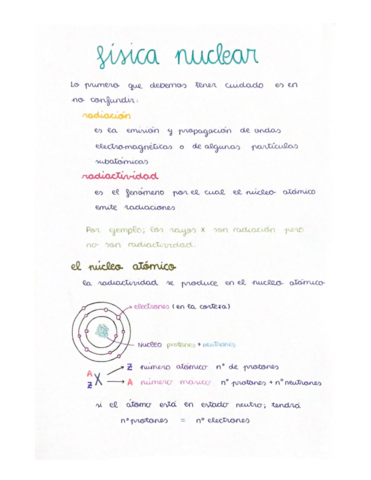 física nuclear
Lo primero que debemos tener cuidado es en
no confundir:
radiación
es la emisión y propagación de ondas
electromagnéticas o de algunas partículas
subatómicas
radiactividad
es el fenómeno por el cual el núcleo atómico
emite radiaciones
Por ejemplo; los rayos X son radiación pero
no son radiactividad.
el núcleo atómico
la radiactividad se produce en el nucleo atómico
electrones (en la corteza)
nucleo protones + neutrones
A
Z X
Z número atómico nº de protones
A número masico nº protones + nº neutrones
si el átomo está en estado neutro; tendrá
nº protones = nº electrones